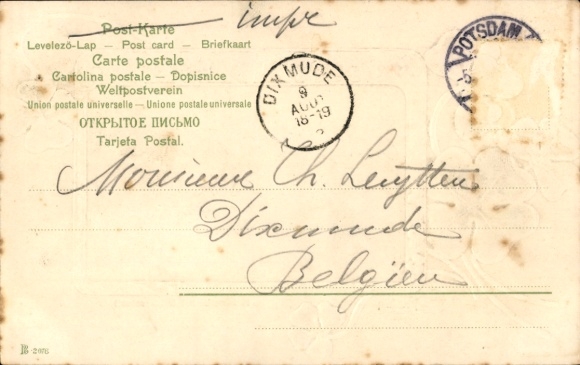 Post-Karte impr
Levelező-Lap — Post card — Briefkaart
Carte postale
Cartolina postale — Dopisnice
Weltpostverein
Union postale universelle — Unione postale universale
ОТКРЫТОЕ ПИСЬМО
Tarjeta Postal.
POTSDAM
DIXMUDE
9
AOU
18-19
Monsieur Ch.
Dixmude
Belgïen